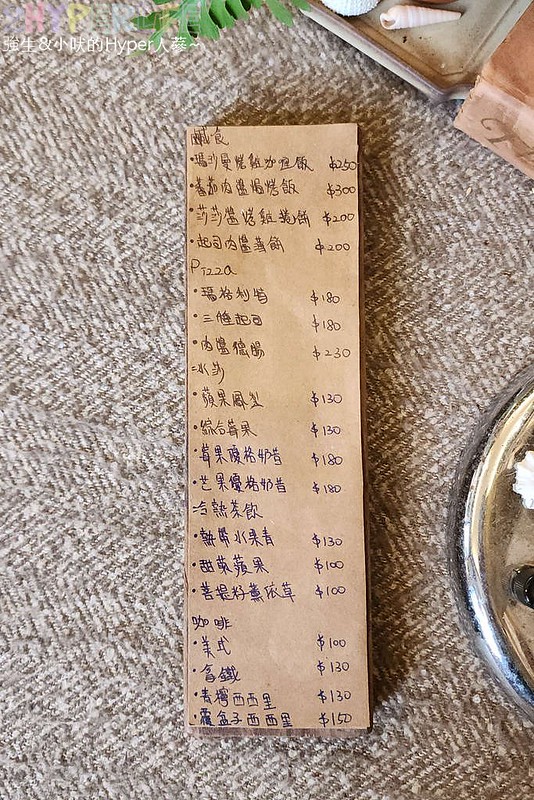 HYPER
強生&小吠的Hyper人蔘~
鹹食
·瑪莎曼烤雞咖哩飯 $250
·蕃茄肉醬焗烤飯 $300
·莎莎醬烤雞捲餅 $200
·起司肉醬薯餅 $200
Pizza
·瑪格利特 $180
·三種起司 $180
·肉醬德腸 $230
冰沙
·蘋果鳳梨 $130
·綜合莓果 $130
·莓果優格奶昔 $180
·芒果優格奶昔 $180
冷熱茶飲
·熱帶水果青 $130
·甜菊蘋果 $100
·菩提籽薰依草 $100
咖啡
·美式 $100
·拿鐵 $130
·青檸西西里 $130
·覆盆子西西里 $150